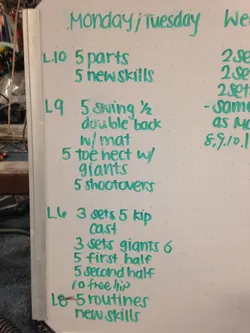 Monday/Tuesday
L10 5 parts
5 new skills
L9 5 swing 1/2
double back
w/ mat
5 toe hect w/
giants
5 shootovers
L6 3 sets 5 kip
cast
3 sets giants 6
5 first half
5 second half
10 free hip
5 routines
new skills
We
2 se
2 set
2 sets
- same
as Mo
8,9,10,1